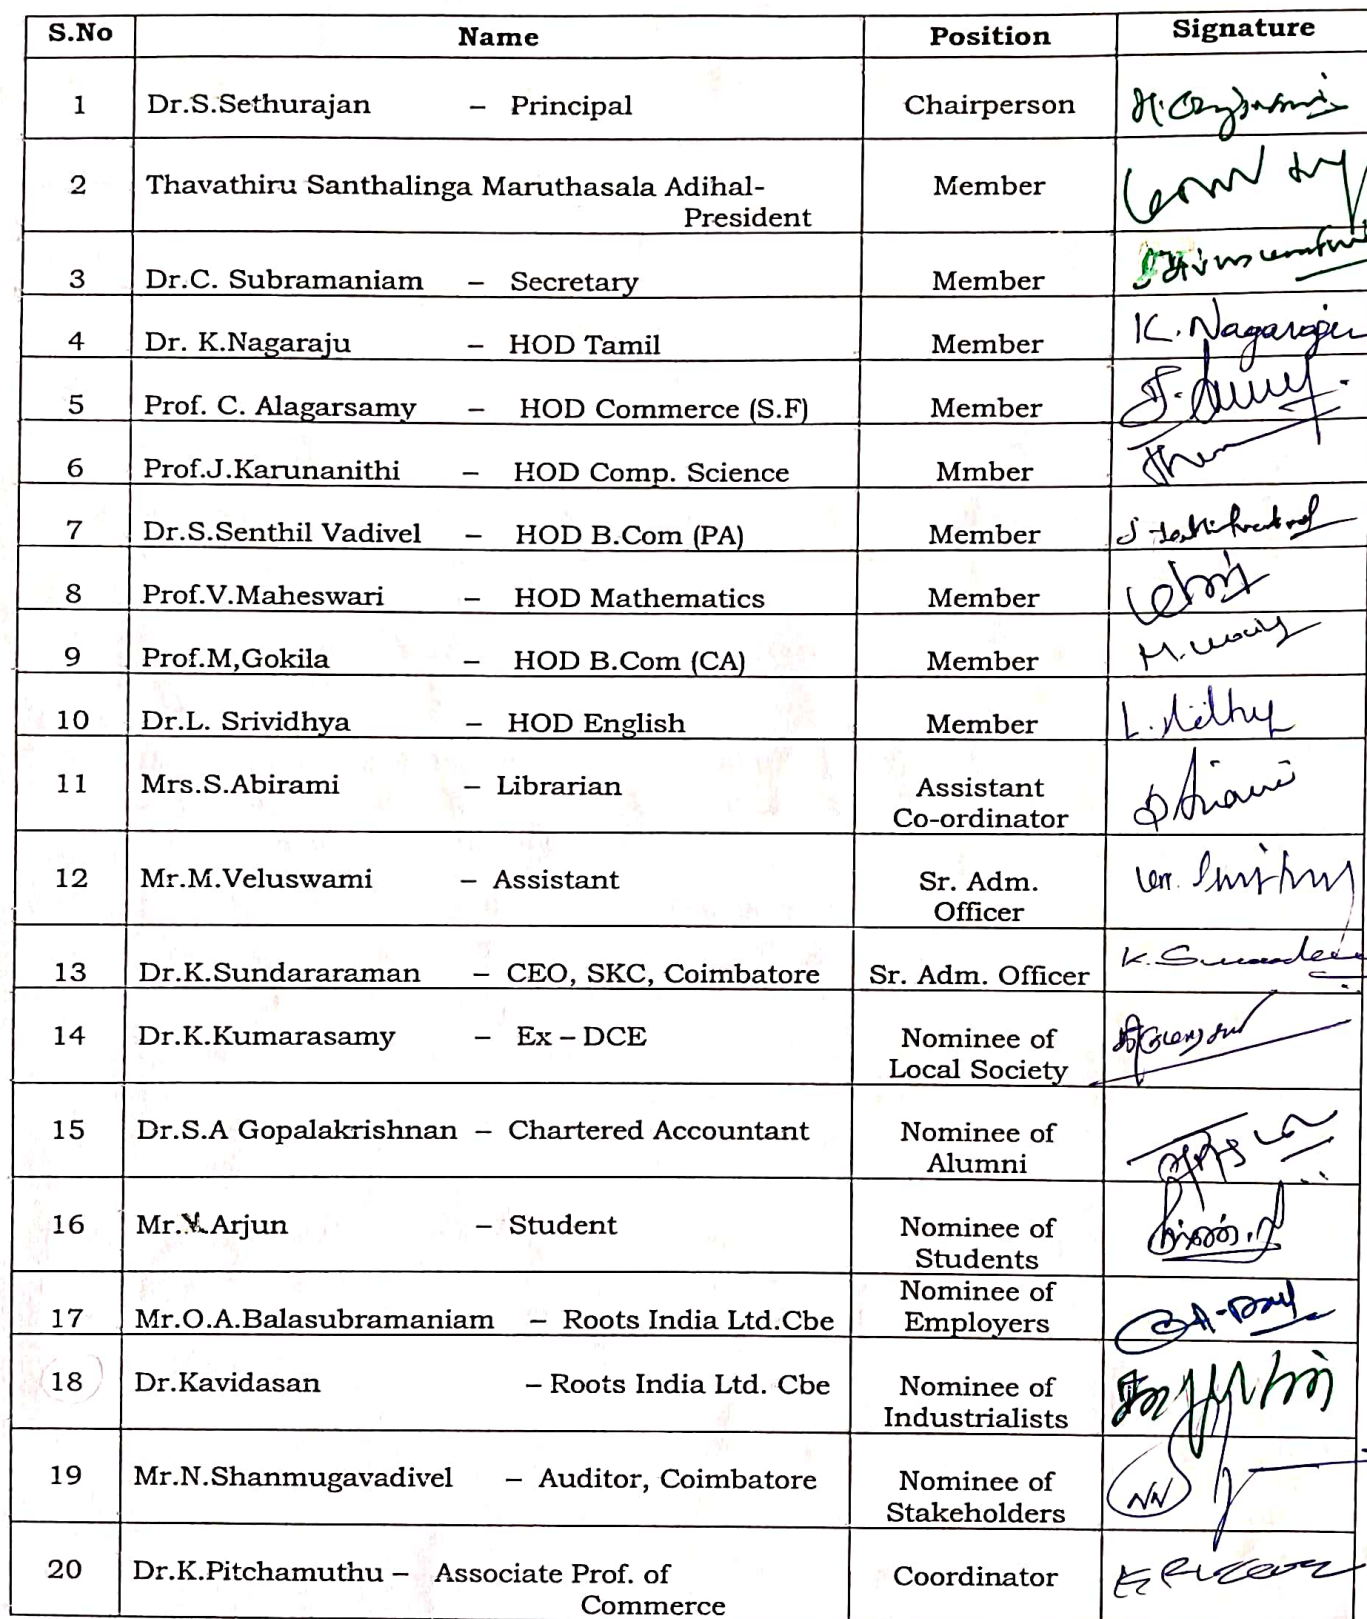 S.No Name Position Signature
1 Dr.S.Sethurajan – Principal Chairperson
2 Thavathiru Santhalinga Maruthasala Adihal- Member
President
3 Dr.C. Subramaniam – Secretary Member
4 Dr. K.Nagaraju – HOD Tamil Member K. Nagaraju
5 Prof. C. Alagarsamy – HOD Commerce (S.F) Member
6 Prof.J.Karunanithi – HOD Comp. Science Mmber
7 Dr.S.Senthil Vadivel – HOD B.Com (PA) Member
8 Prof.V.Maheswari – HOD Mathematics Member
9 Prof.M,Gokila – HOD B.Com (CA) Member
10 Dr.L. Srividhya – HOD English Member
11 Mrs.S.Abirami – Librarian Assistant
Co-ordinator
12 Mr.M.Veluswami – Assistant Sr. Adm.
Officer
13 Dr.K.Sundararaman – CEO, SKC, Coimbatore Sr. Adm. Officer
14 Dr.K.Kumarasamy – Ex – DCE Nominee of
Local Society
15 Dr.S.A Gopalakrishnan – Chartered Accountant Nominee of
Alumni
16 Mr.V.Arjun – Student Nominee of
Students
17 Mr.O.A.Balasubramaniam – Roots India Ltd.Cbe Nominee of
Employers
18 Dr.Kavidasan – Roots India Ltd. Cbe Nominee of
Industrialists
19 Mr.N.Shanmugavadivel – Auditor, Coimbatore Nominee of
Stakeholders
20 Dr.K.Pitchamuthu – Associate Prof. of Coordinator
Commerce